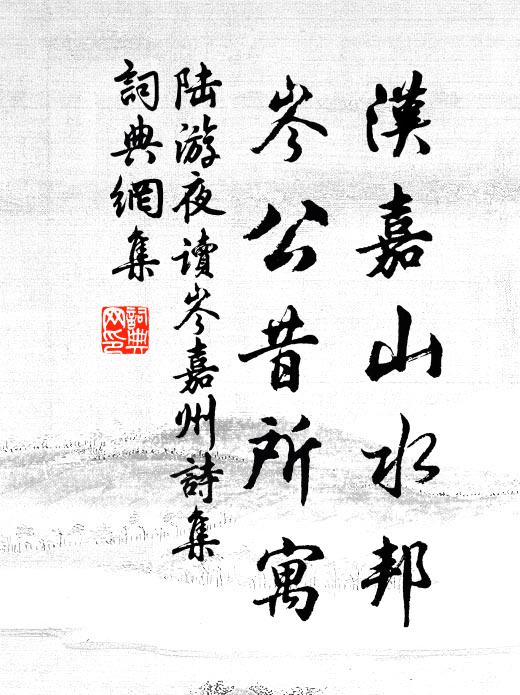 漢嘉山水邦
岑公昔所寓
陆游夜讀岑嘉州詩集
詞典網集
詞典
网印